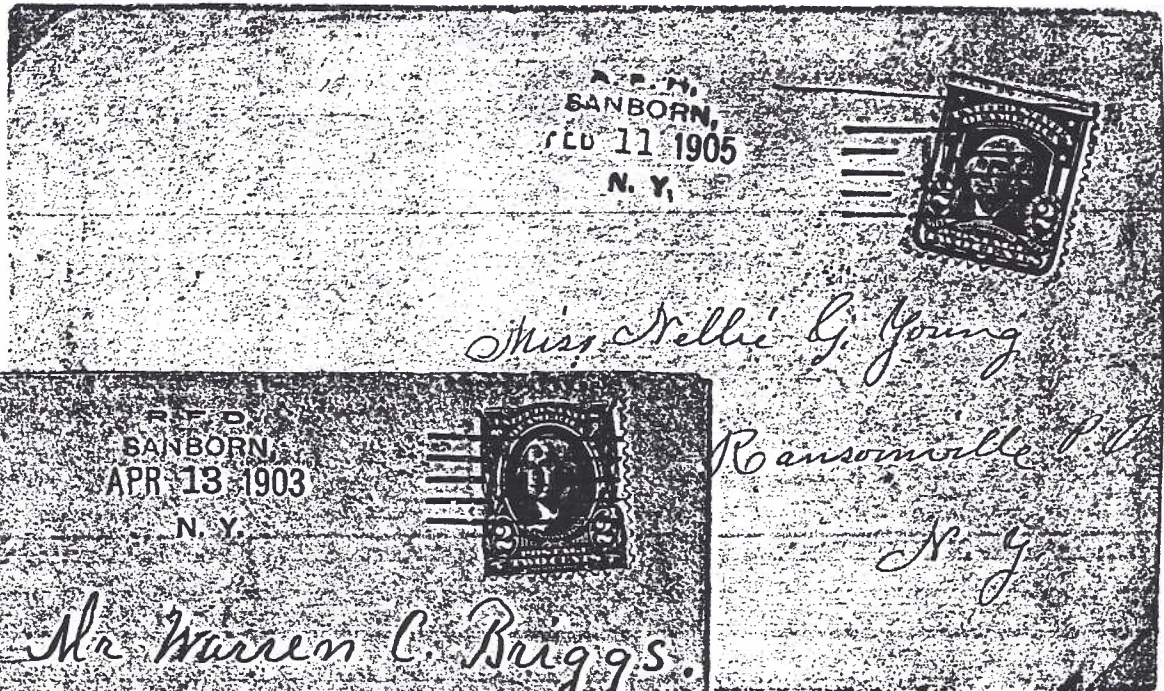 SANBORN,
FEB 11 1905
N. Y.
2 2
Miss Nellie G. Young
Ransomville P.O.
N. Y.
R. F. D.
SANBORN,
APR 13 1903
N. Y.
2 2
Mr Warren C. Briggs.